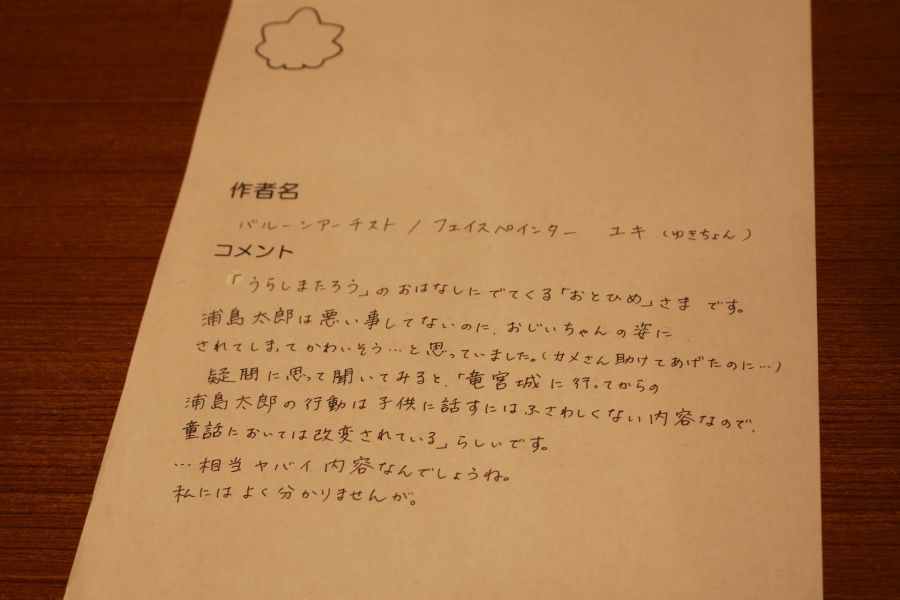 作者名
バルーンアーチスト / フェイスペインター ユキ (ゆきちょん)
コメント
「うらしまたろう」のおはなしにでてくる「おとひめ」さまです。
浦島太郎は悪い事してないのに、おじいちゃんの姿に
されてしまってかわいそう…と思っていました。(カメさん助けてあげたのに…)
疑問に思って聞いてみると、「竜宮城に行ってからの
浦島太郎の行動は子供に話すにはふさわしくない内容なので、
童話においては改変されている」らしいです。
…相当ヤバイ内容なんでしょうね。
私にはよく分かりませんが。